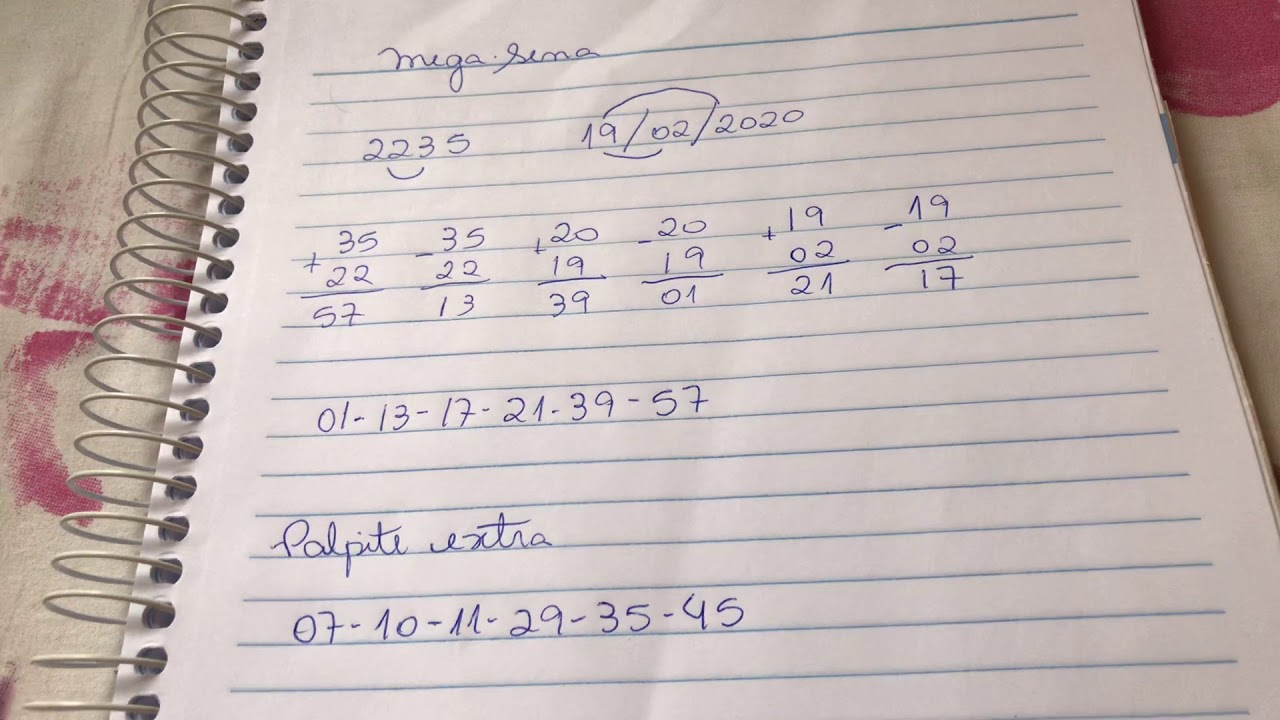 Mega-Sena
2235 19/02/2020
+35 -35 +20 -20 +19 -19
22 22 19 19 02 02
57 13 39 01 21 17
01-13-17-21-39-57
Palpite extra
07-10-11-29-35-45